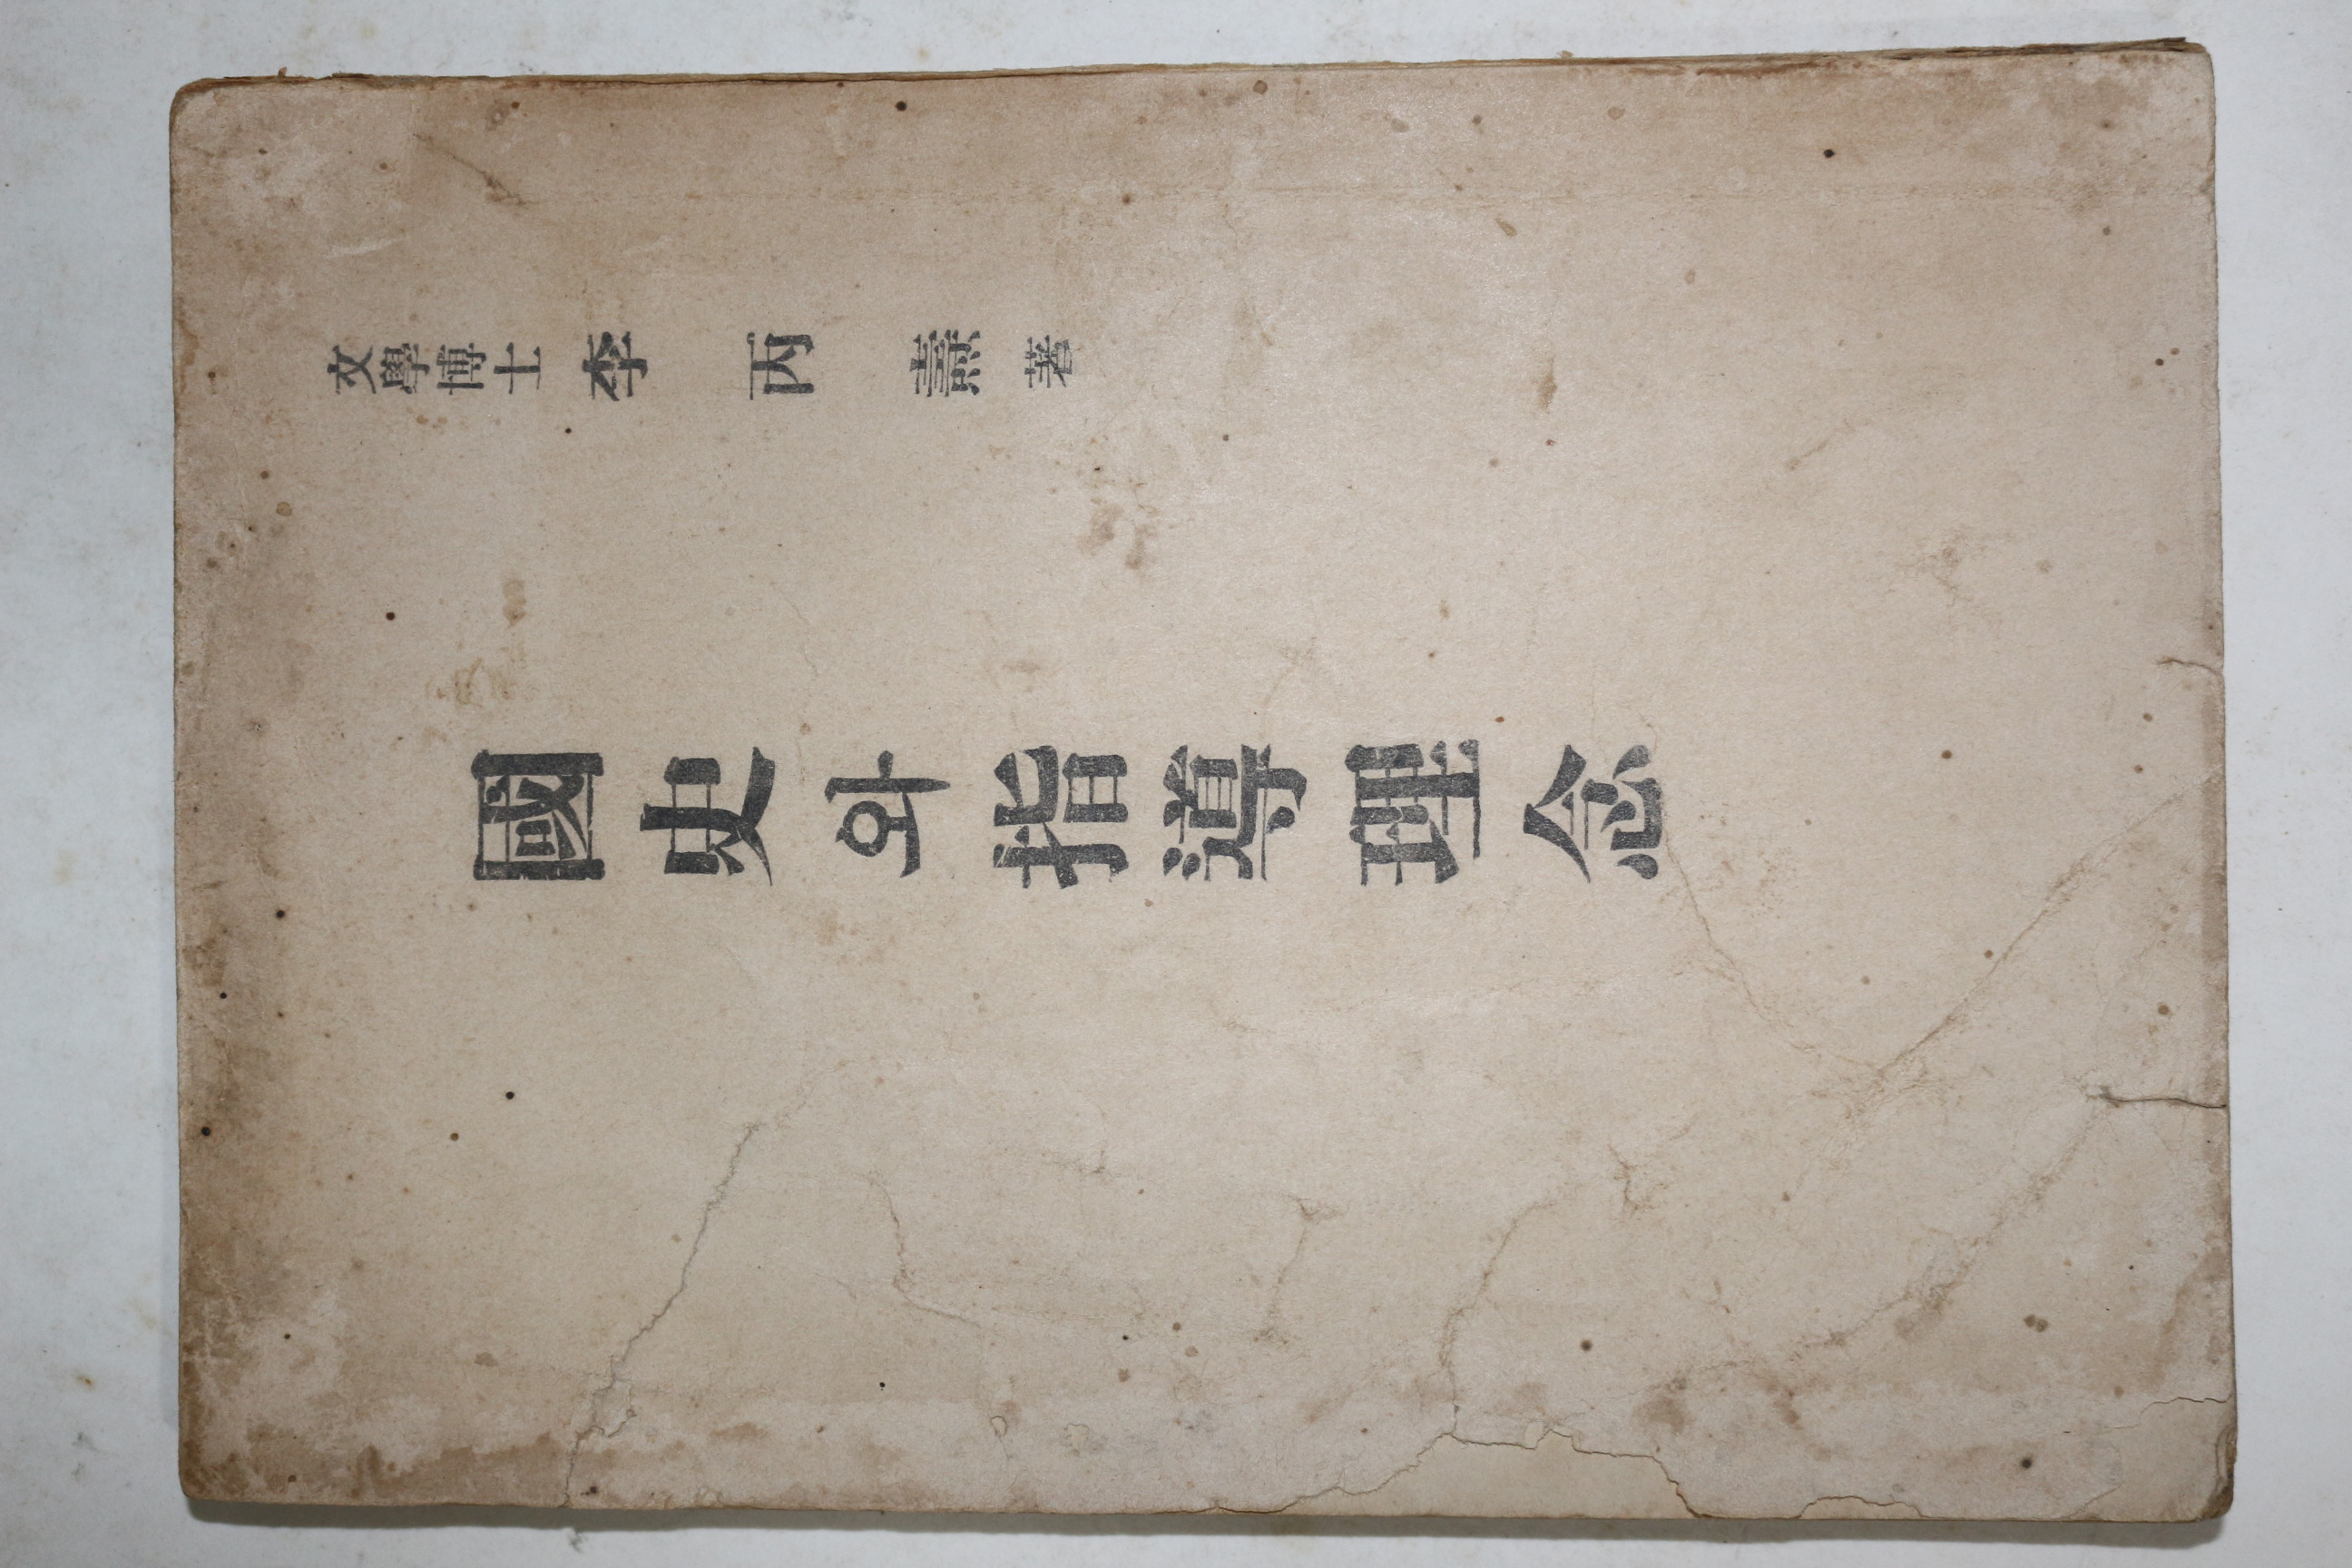 文學博士 李丙燾 著
國史와指導理念